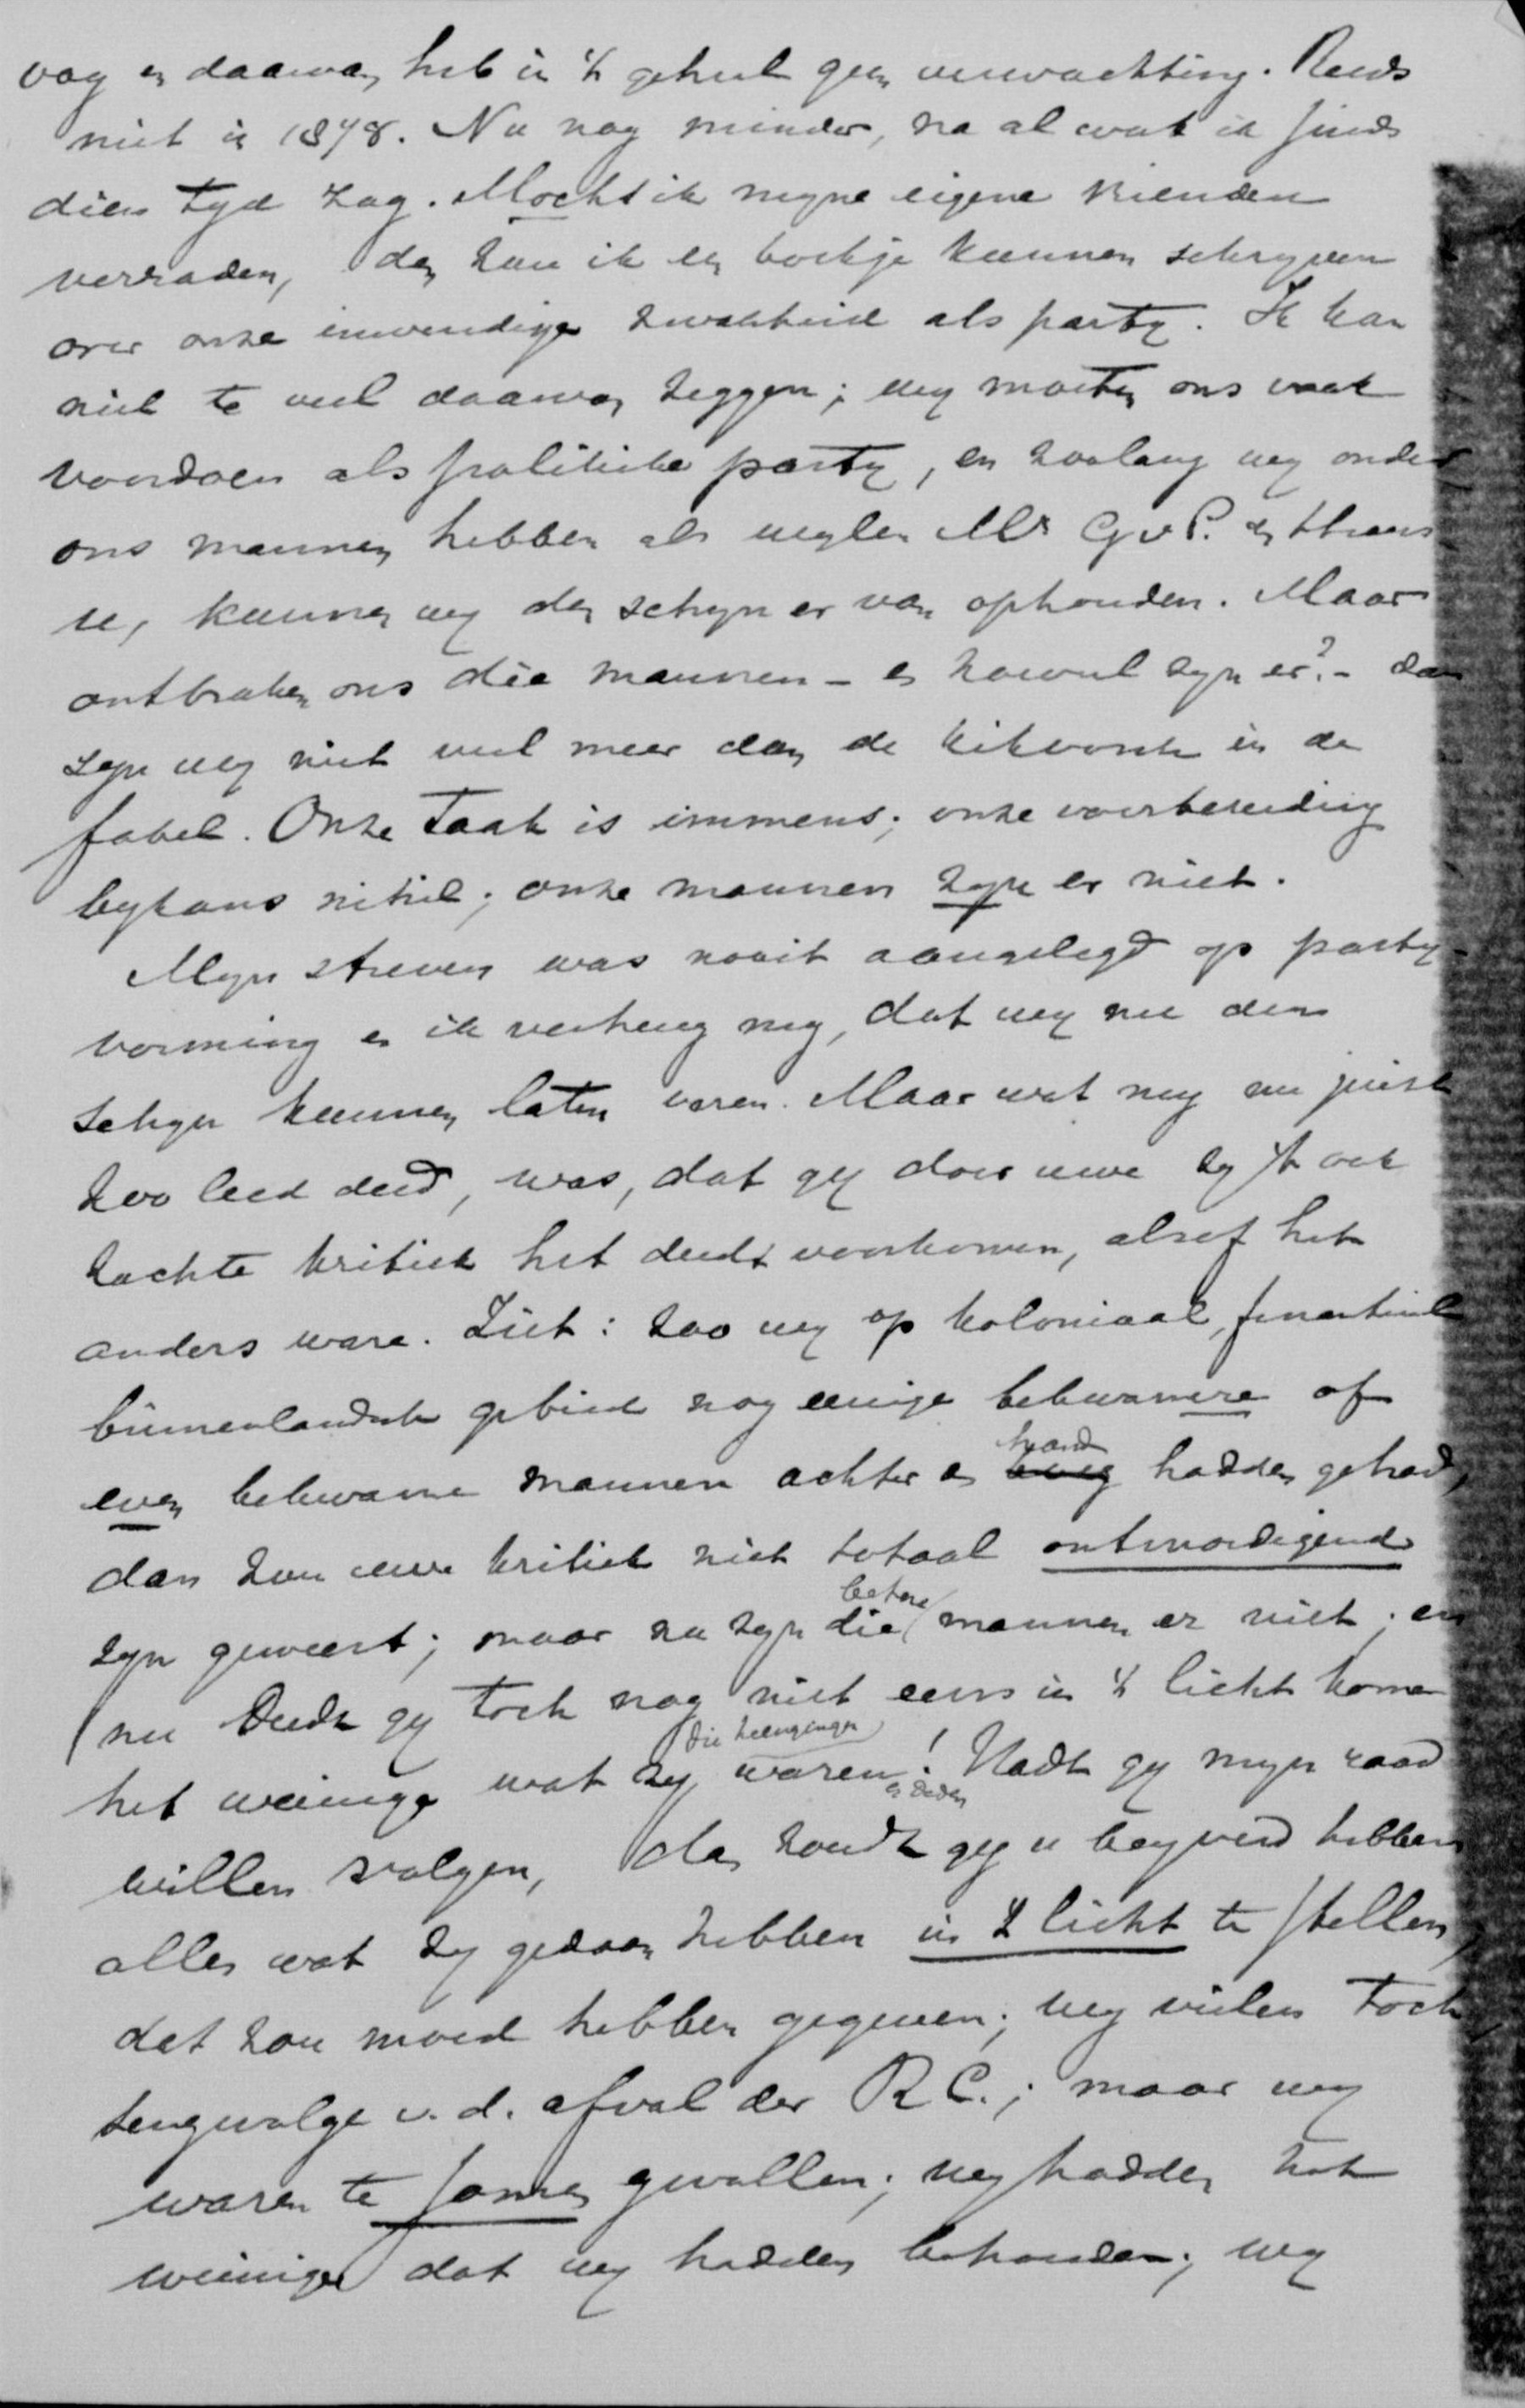 oog en daarvan heb ik 't geheel geen verwachting. Reeds
niet in 1848. Nu nog minder, na al wat ik sinds
dien tyd zag. Mocht ik myne eigene vrienden
verraden, dan zou ik een boekje kunnen schryven
over onze inwendige zwakheid als party. Ik kan
niet te veel daarvan zeggen; wy moeten ons vaak
voordoen als politieke party, en zoolang wy onder
ons mannen hebben als wylen Mr G v P. en thans
u, kunnen wy den schyn er van ophouden. Maar
ontbraken ons die mannen - en hoeveel zyn er? - dan
zyn wy niet veel meer dan de kikvorsch in de
fabel. Onze taak is immens; onze voorbereiding
bykans nihil; onze mannen zyn er niet.
Myn streven was nooit aangelegd op party-
vorming en ik verheug my, dat wy nu den
schyn kunnen laten varen. Maar wat my nu juist
zoo leed deed, was, dat gy door uwe zy 't ook
zachte kritiek het deedt voorkomen, alsof het
anders ware. Ziet: zoo wy op koloniaal, financieel
binnenlandsch gebied nog eenige bekwamere of
even bekwame mannen achter de hand hadden gehad,
dan zou uwe kritiek niet totaal ontmoedigend
zyn geweest; maar nu zyn die betere mannen er niet; en
nu deedt gy toch nog niet eens in 't licht komen
het weinige wat zy, die heengingen waren en deden! Hadt gy myn raad
willen volgen, dan zoudt gy u beyverd hebben
alles wat zy gedaan hebben in 't licht te stellen,
dat zou moed hebben gegeven; wy vielen toch
tengevolge v. d. afval der R C.; maar wy
waren te samen gevallen; wy hadden het
weinige dat wy hadden behouden; wy